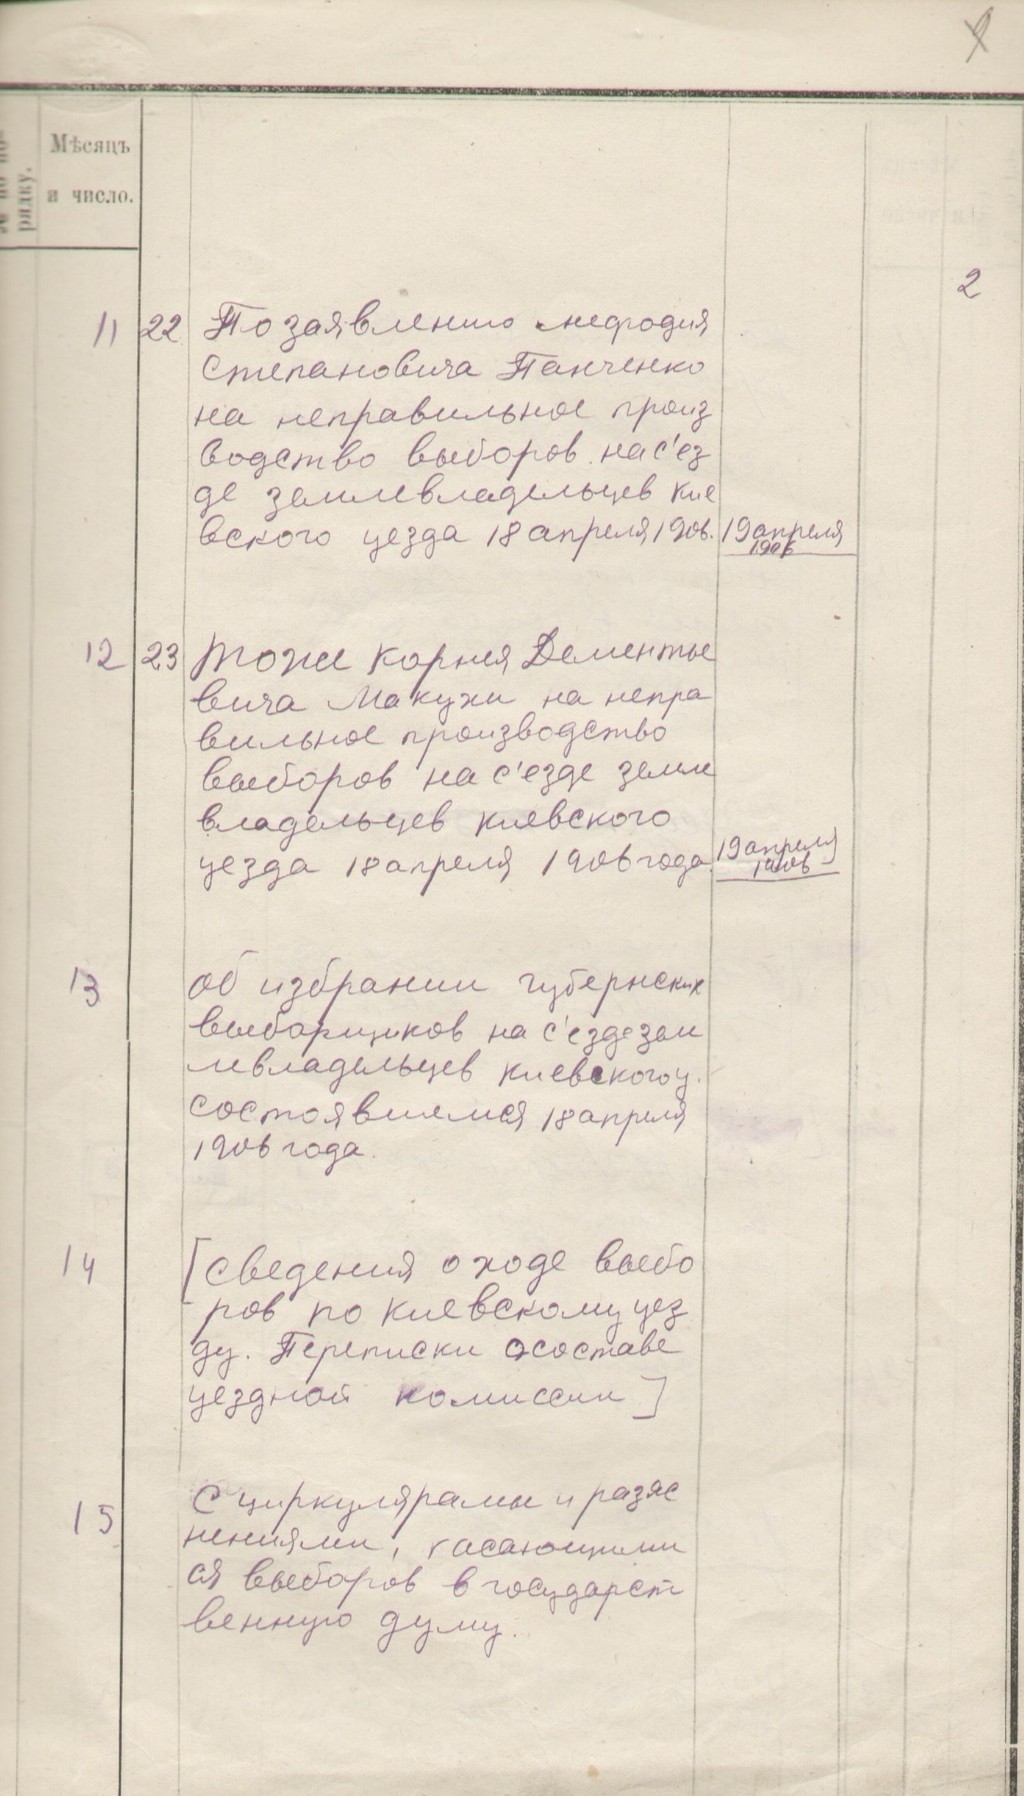 № по по-
рядку.
Мѣсяцъ
и число.
2
11 22 По заявлению мефодия
Степановича Панченко
на неправильное произ
водство выборов на с'ез
де землевладельцев кие
вского уезда 18 апреля 1906. 19 апреля
1906
12 23 тоже Корнея Дементье
вича Макухи на непра
вильное производство
выборов на с'езде земле
владельцев киевского
уезда 18 апреля 1906 года. 19 апреля
1906
13 об избрании губернских
выборщиков на с'езде зем
левладельцев киевского у.
состоявшемся 18 апреля
1906 года.
14 [сведения о ходе выбо
ров по киевскому уез
ду. Переписки о составе
уездной комиссии]
15 С циркулярами и разяс
нениями, касающими
ся выборов в государст
венную думу.